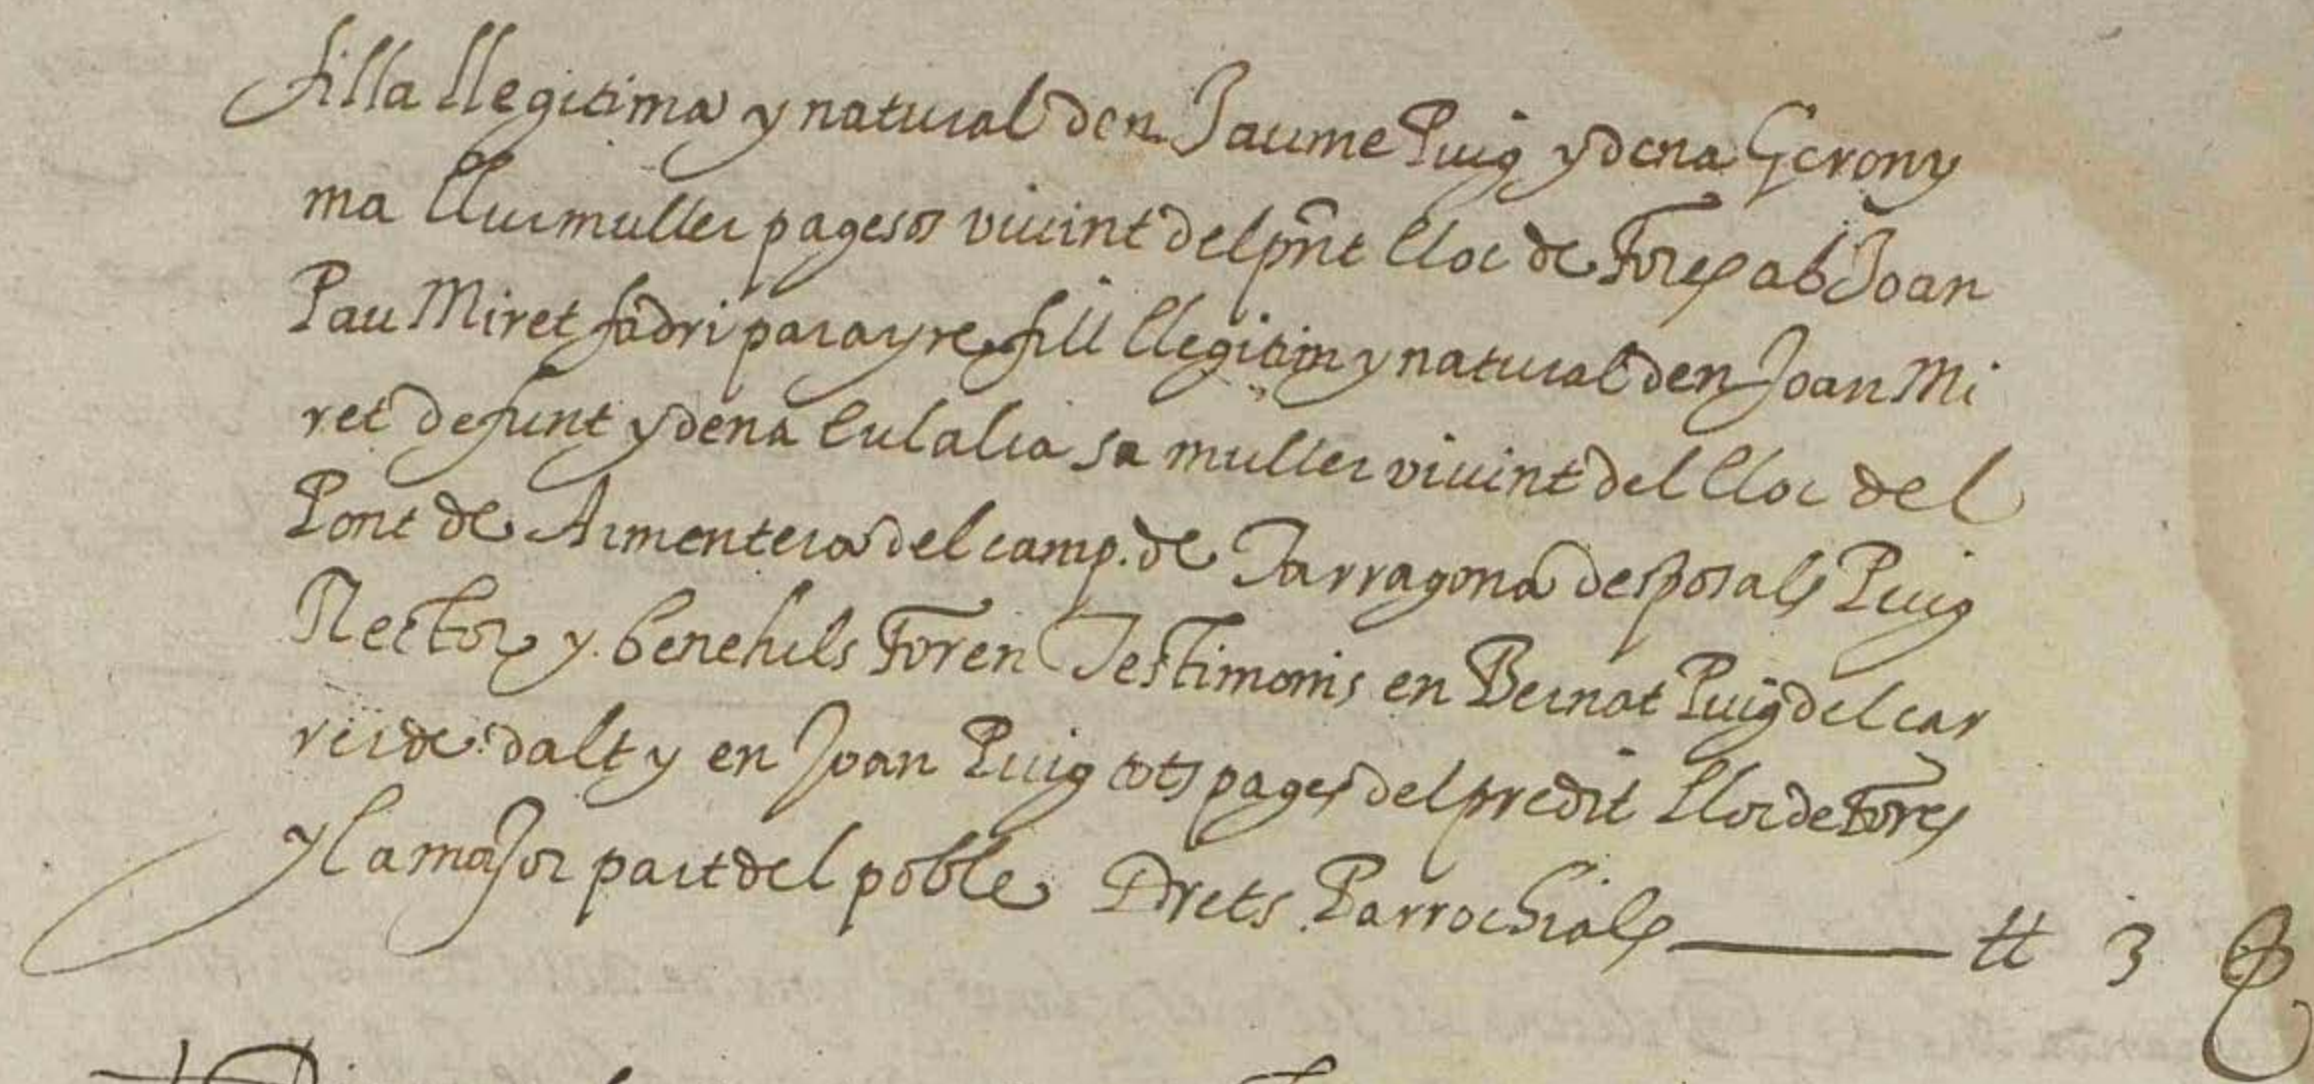 filla llegitima y natural den Jaume Puig y dena Gerony
ma llur muller pagesos viuint del pñt lloc de Fores ab Joan
Pau Miret fadri parayre fill llegitim y natural den Joan Mi
ret defunt y dena Eulalia sa muller viuint del lloc del
Pont de Armentera del camp. de Tarragona desposals Puig
Rector y benehils Foren Testimonis en Bernat Puig del car
rer de dalt y en Joan Puig tots pages del predit lloc de Fores
y la major part del poble Drets Parrochials — tt 3